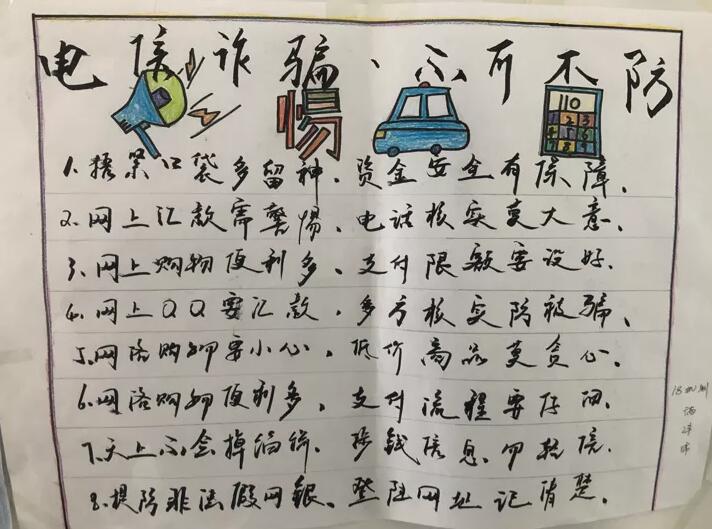 电信诈骗、不可不防
惕
110
1 2 3
4 5 6
7 8 9
1.捂紧口袋多留神、资金安全有保障、
2.网上汇款需警惕、电话核实莫大意、
3.网上购物便利多、支付限额要设好、
4.网上QQ要汇款、多方核实防被骗、
5.网络购物要小心、低价商品莫贪心、
6.网络购物便利多、支付流程要仔细、
7.天上不会掉馅饼、挣钱信息勿轻信、
8.提防非法假网银、登陆网址记清楚、